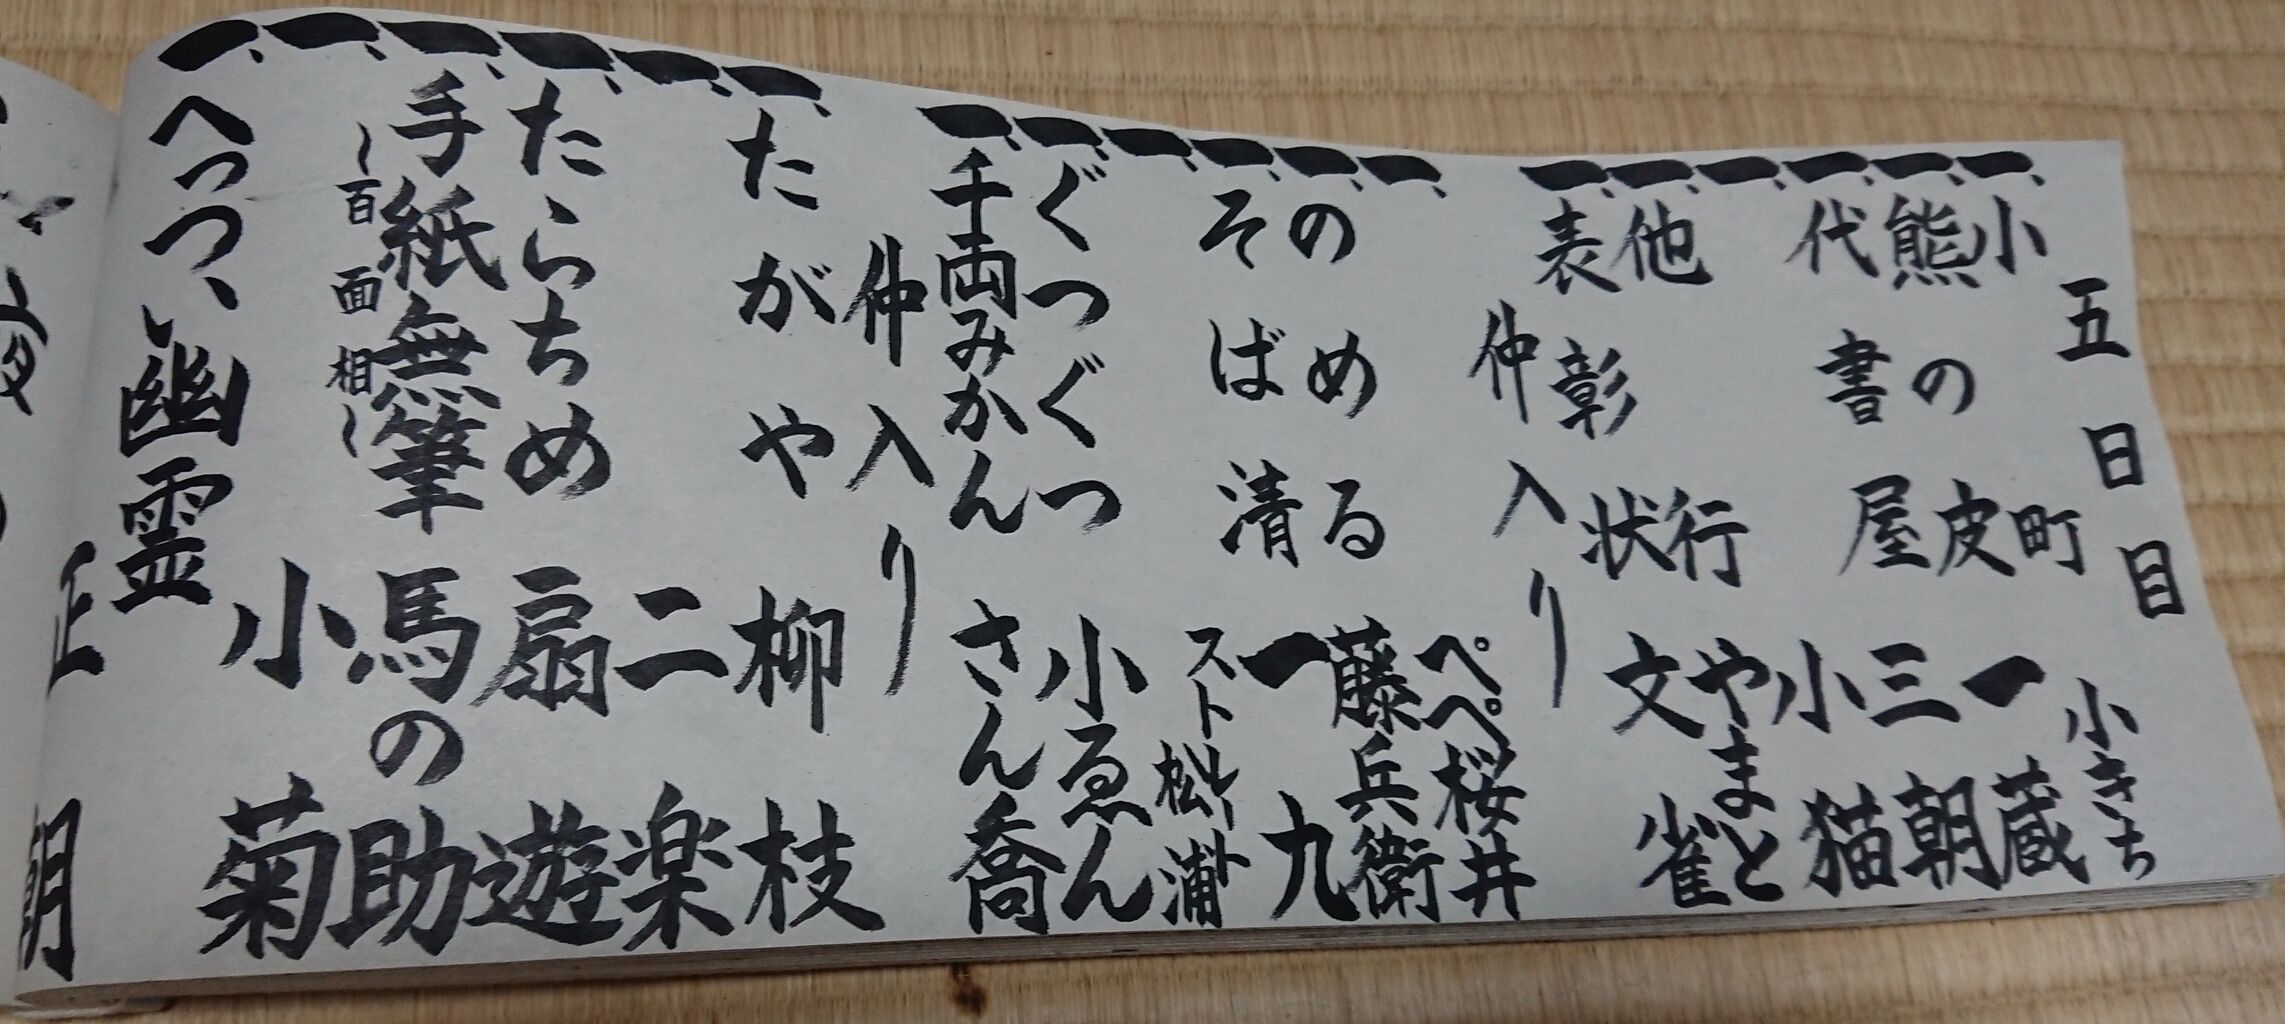 五日目
一、小町 小きち
一、熊の皮 一蔵
一、代書屋 三朝
一、小猫
一、他行 やまと
一、表彰状 文雀
仲入り
一、ペペ桜井
一、のめる 藤兵衛
一、そば清 一九
一、ストレート松浦
一、ぐつぐつ 小ゑん
一、千両みかん さん喬
仲入り
一、たがや 柳枝
一、二楽
一、たらちめ 扇遊
一、手紙無筆 馬の助
〜百面相〜
一、小菊
一、へっつい幽霊 正朝